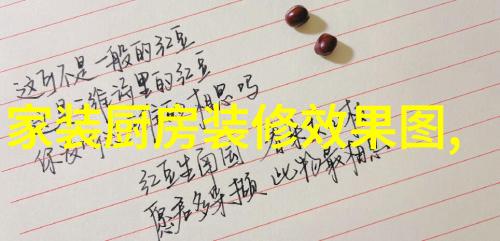 这可不是一般的红豆
维诗里的红豆
相思吗
家装厨房装修效果图,
红豆生南国 春来
愿君多采撷 此物最相